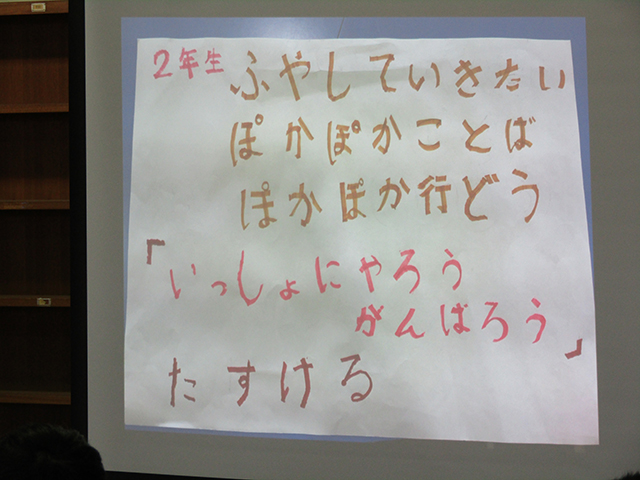 2年生 ふやしていきたい
ぽかぽかことば
ぽかぽか行どう
「いっしょにやろう
がんばろう」
たすける